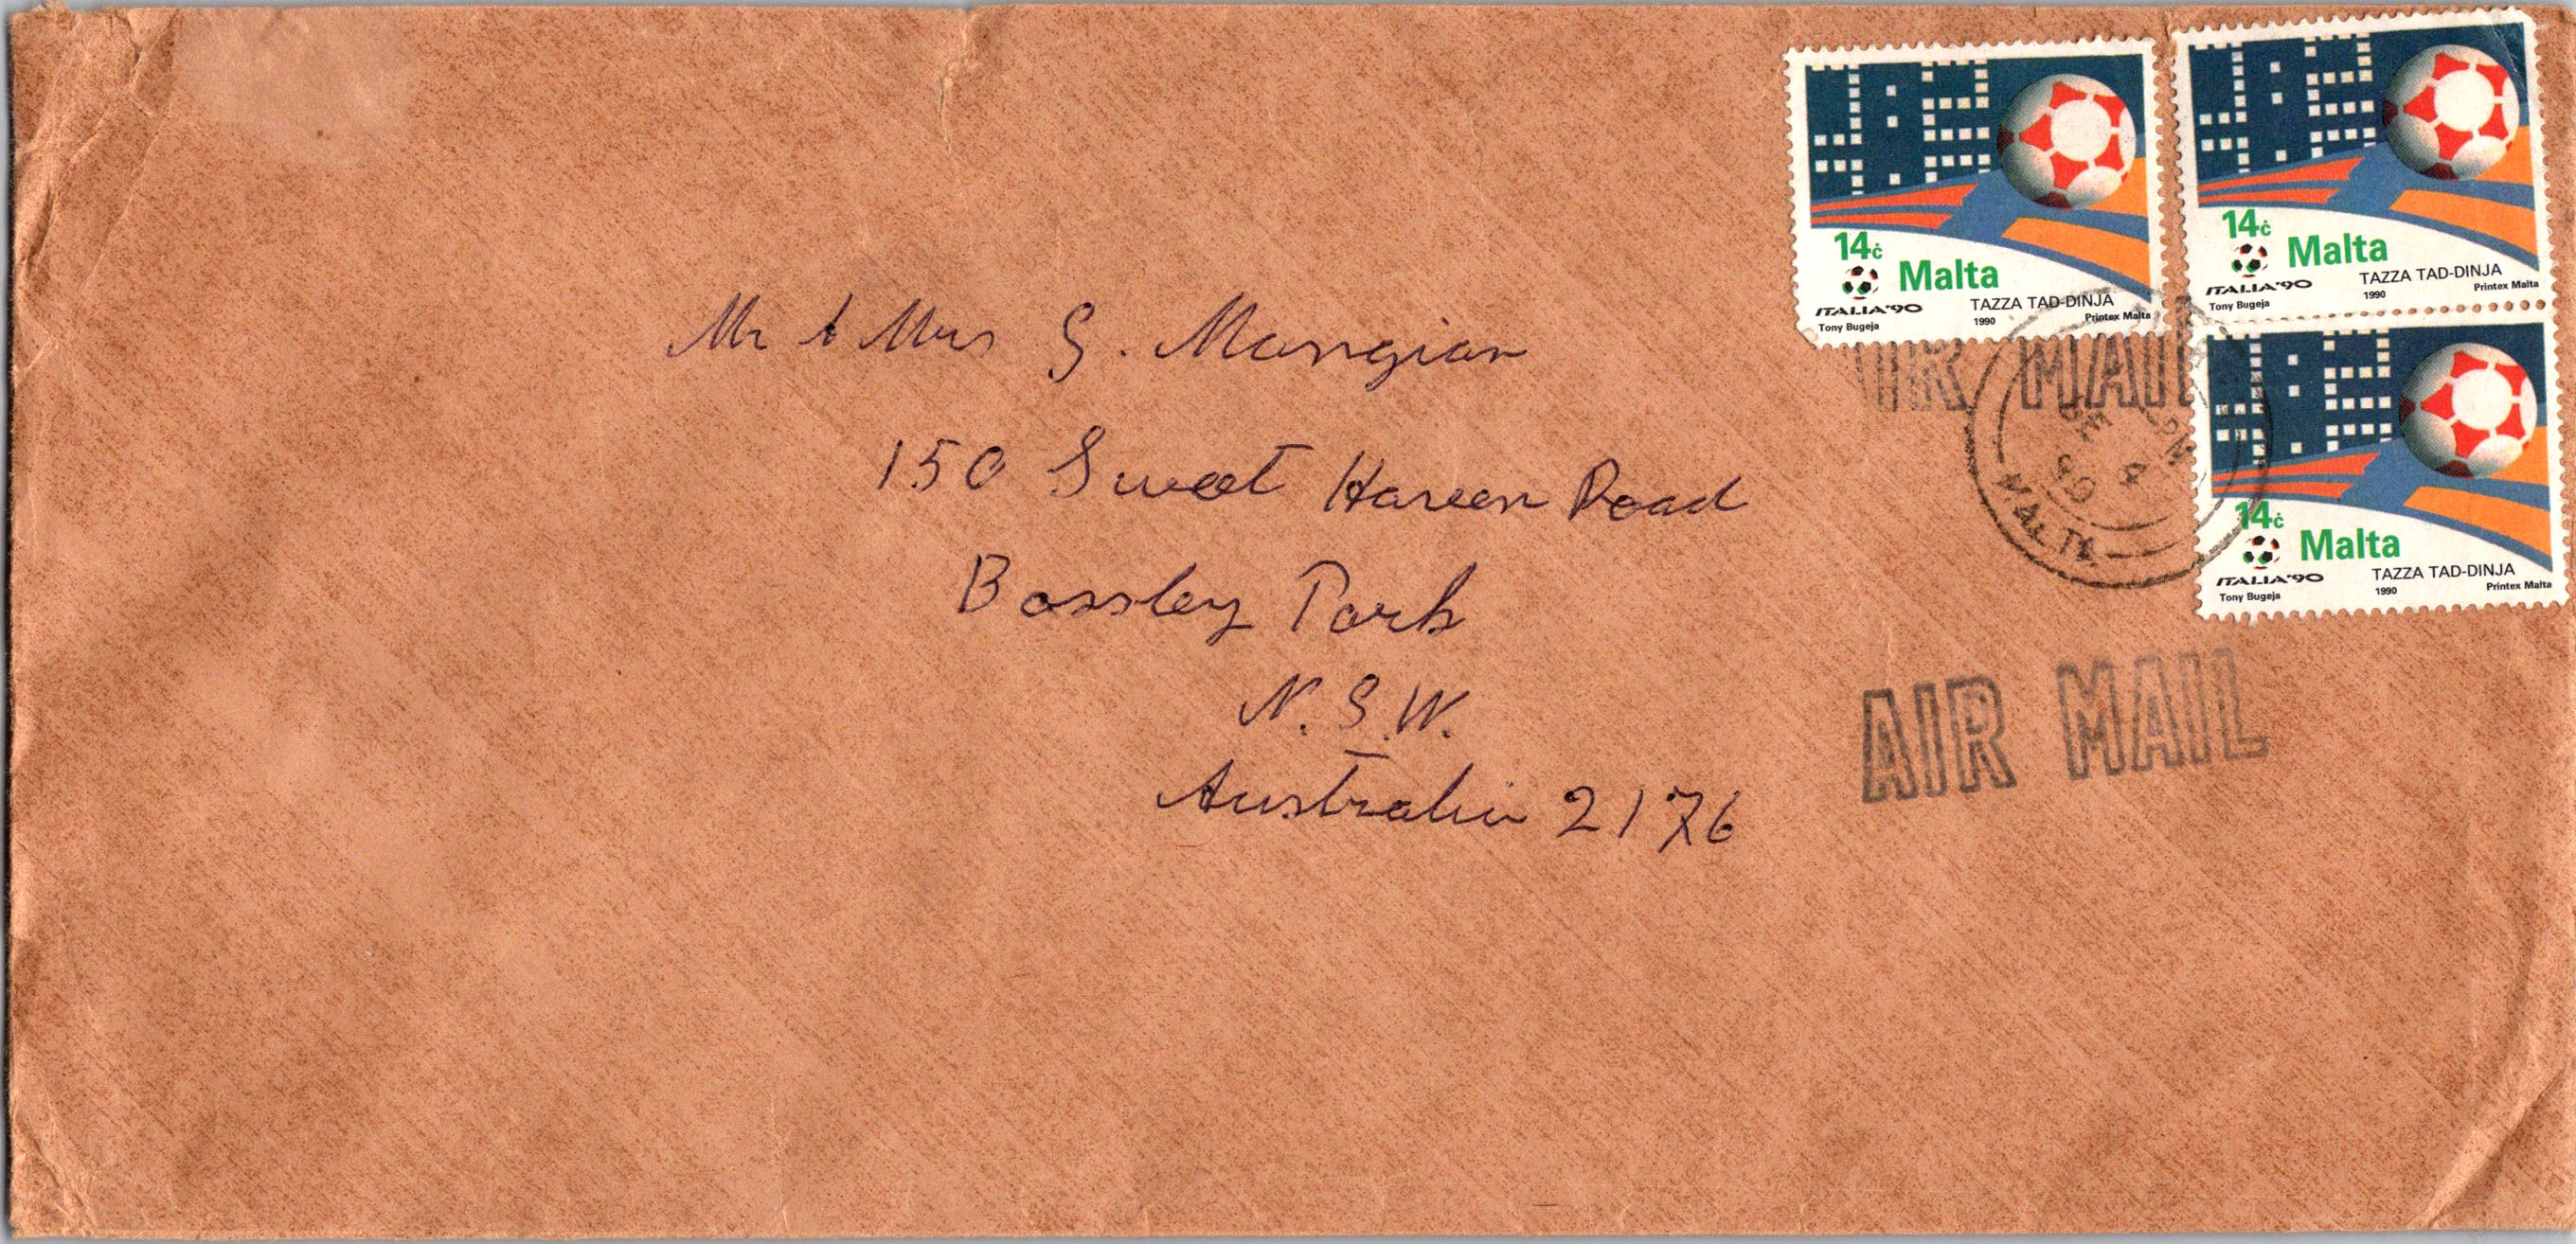 14ċ
Malta
ITALIA'90
TAZZA TAD-DINJA
Tony Bugeja
1990
Printex Malta
14ċ
Malta
ITALIA'90
TAZZA TAD-DINJA
Tony Bugeja
1990
Printex Malta
14ċ
Malta
ITALIA'90
TAZZA TAD-DINJA
Tony Bugeja
1990
Printex Malta
AIR MAIL
SE
90
MALTA
Mr & Mrs G. Mangion
150 Sweet Haven Road
Bossley Park
N.S.W.
Australia 2176
AIR MAIL